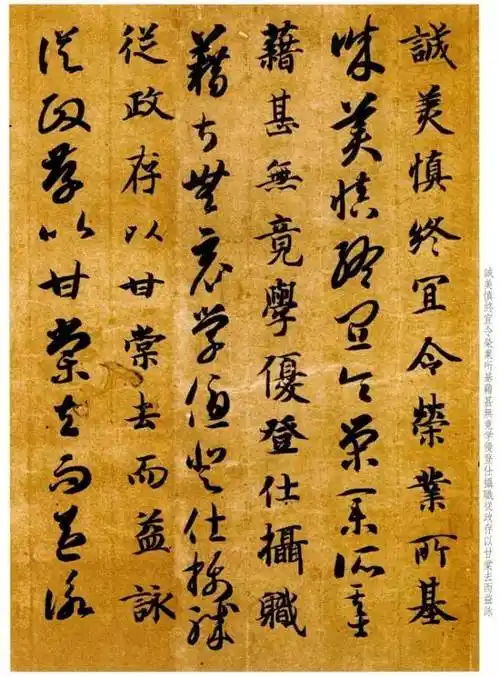 誠美慎終宜令榮業所基
誠美慎終宜令榮業所基
藉甚無竟學優登仕攝職
藉甚無竟學優登仕攝職
從政存以甘棠去而益詠
從政存以甘棠去而益詠
誠美慎終宜令榮業所基藉甚無竟學優登仕攝職從政存以甘棠去而益詠